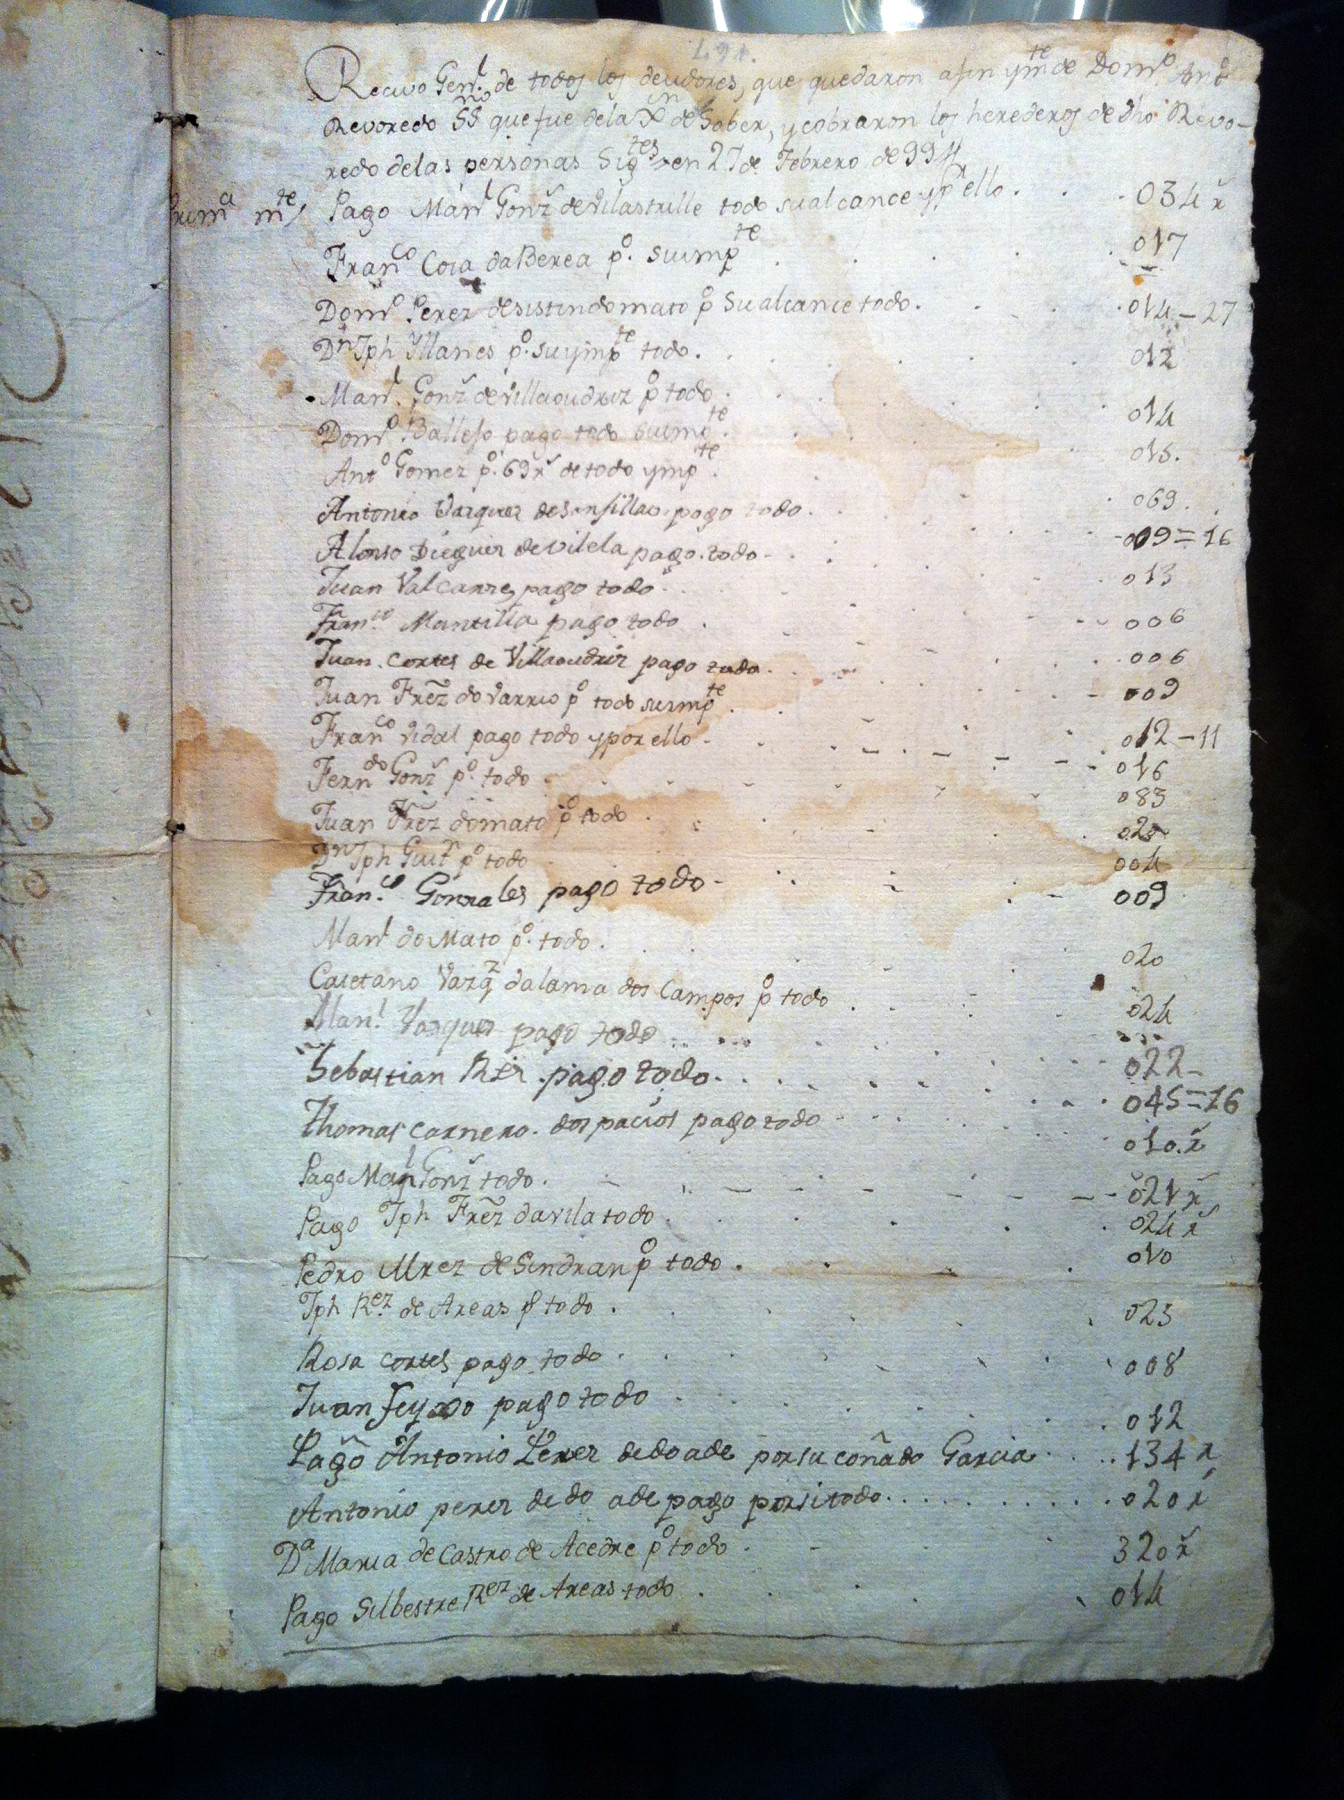 Recivo Genl. de todos los deudores, que quedaron a fin ymte de Domo Anto
Revoredo SSno que fue dela Xn de Sober, y cobraron los herederos de dho Revo-
redo delas personas Sigtes en 27 de Febrero de 994
Primamte, Pago Manl Gonz de Vilastrille todo su alcance y pr ello . . . 034 r
Franco Coia da Berea po. su impte . 017
Domo Perez de sistindomato po su alcance todo. . . 014 - 27
Dn Jph Yllanes po. su ympte todo. . 012
Manl. Gonz de Villaoudriz po todo . 014
Domo Ballejo pago todo su impte. 015.
Anto Gomez po. 69 r de todo ympte. 069.
Antonio Vazquez de pago todo. 009=16
Alonso Dieguez de vilela pago todo - . 013
Juan Valcarze pago todo . 006
Franco Mantilla pago todo . 006
Juan Cortes de Villaoudriz pago todo . 009
Juan Frez do Varrio po todo su impte . 012-11
Franco Vidal pago todo y por ello - . 016
Ferndo Gonz po. todo . 083
Juan Frez domato po todo . 025
Dn Jph Guitn po todo 004
Franco Gonzales pago todo - 009
Manl do Mato po. todo . 020
Caietano Vazqz dalama dos Campos po todo . 024
Manl. Vazquez pago todo . . . . 022-
Sebastian Rer pago todo . . . . 045=16
Thomas Carnero dos pacios pago todo - 010.r
Pago Manl Gonz todo . - 021 r
Pago Jph Frez davila todo . 024 r
Pedro Mrez de Sindran po todo . 010
Jph Rez de Areas po todo . 023
Rosa Cortes pago todo . 008
Juan Feyxo pago todo . 012
Pago Antonio Perez dedoade por su coñado Garcia . . . 134 r
Antonio perez de do ade pago por si todo. . . . . 020 r
Da Maria de Castro de Acedre po todo . - 320 r
Pago Silbestre Rez de Areas todo . 014